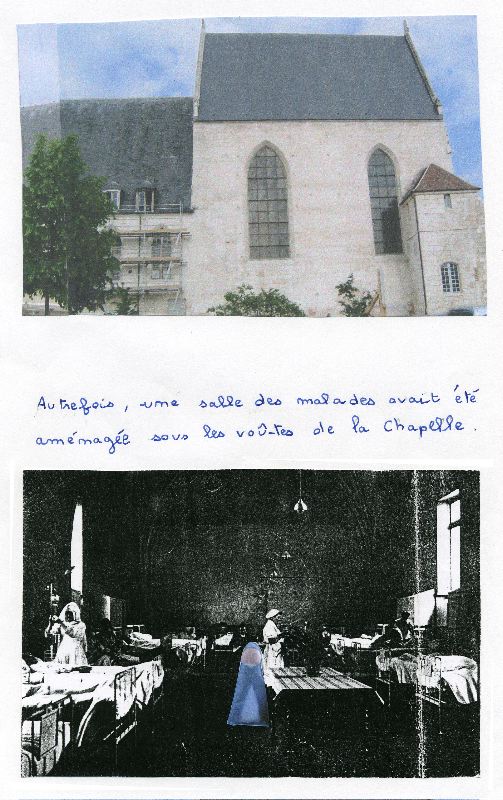 Autrefois, une salle des malades avait été
aménagée sous les voû-tes de la Chapelle.